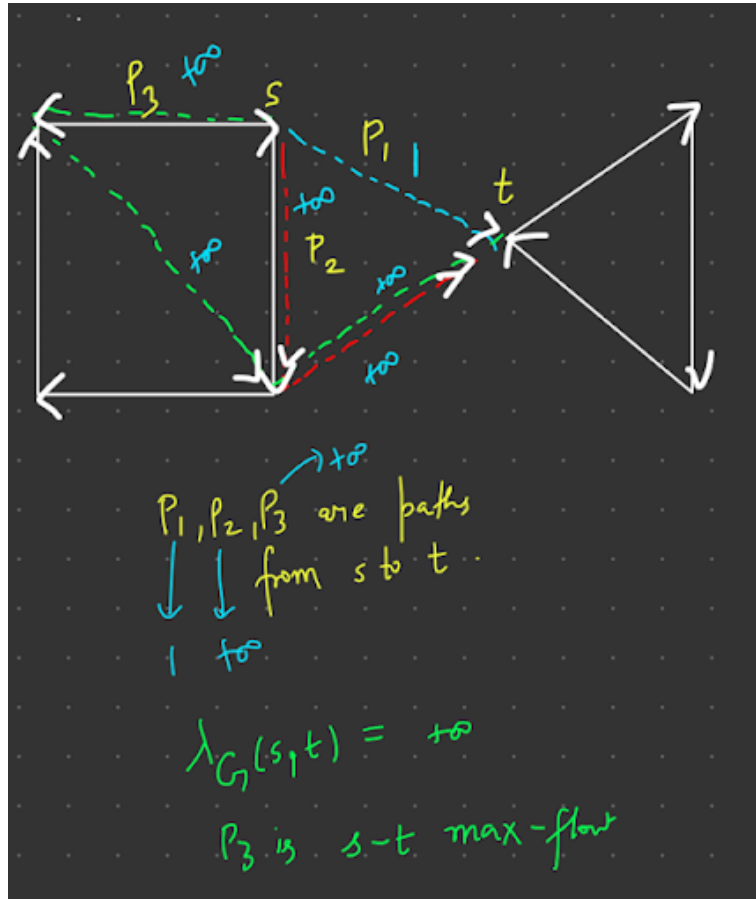 P3 +∞ s
P1 1
t
+∞
P2
+∞
+∞
+∞
→ +∞
P1, P2, P3 are paths
from s to t.
1 +∞
λG(s,t) = +∞
P3 is s-t max-flow